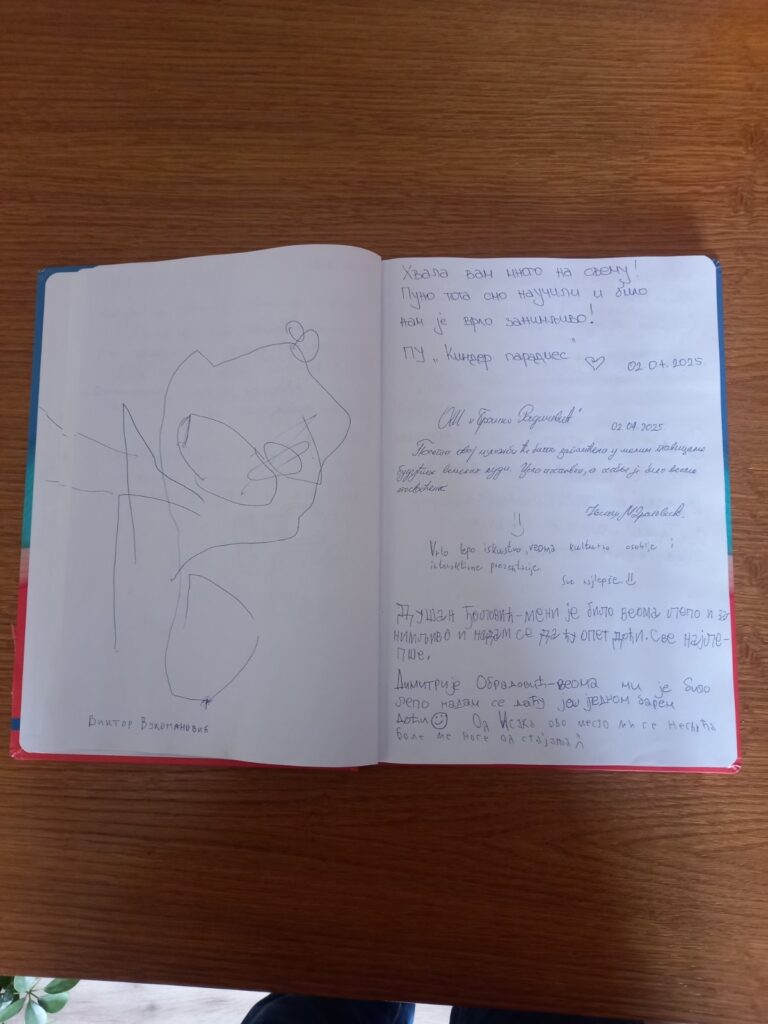 Виктор Вукомановић
Хвала вам много на свему!
Пуно тога смо научили и било
нам је врло занимљиво!
ПУ „Киндер парадиес" 02.04.2025.
ОШ „Бранко Радичевић" 02.04.2025.
Поготово овој изложби ће бити у малим главицама
будућих великих људи. је било веома
посвећено
Vrlo lepo iskustvo, veoma kulturno osoblje i
interaktivne prezentacije.
Sve najlepše
Душан - мени је било веома лепо и за
нимљиво и надам се да ћу опет доћи. Све најле-
пше.
Димитрије Обрадовић-веома ми је било
лепо надам се да ћу још једном барем
доћи Од Исака ово место ми се
боле ме ноге од стајања